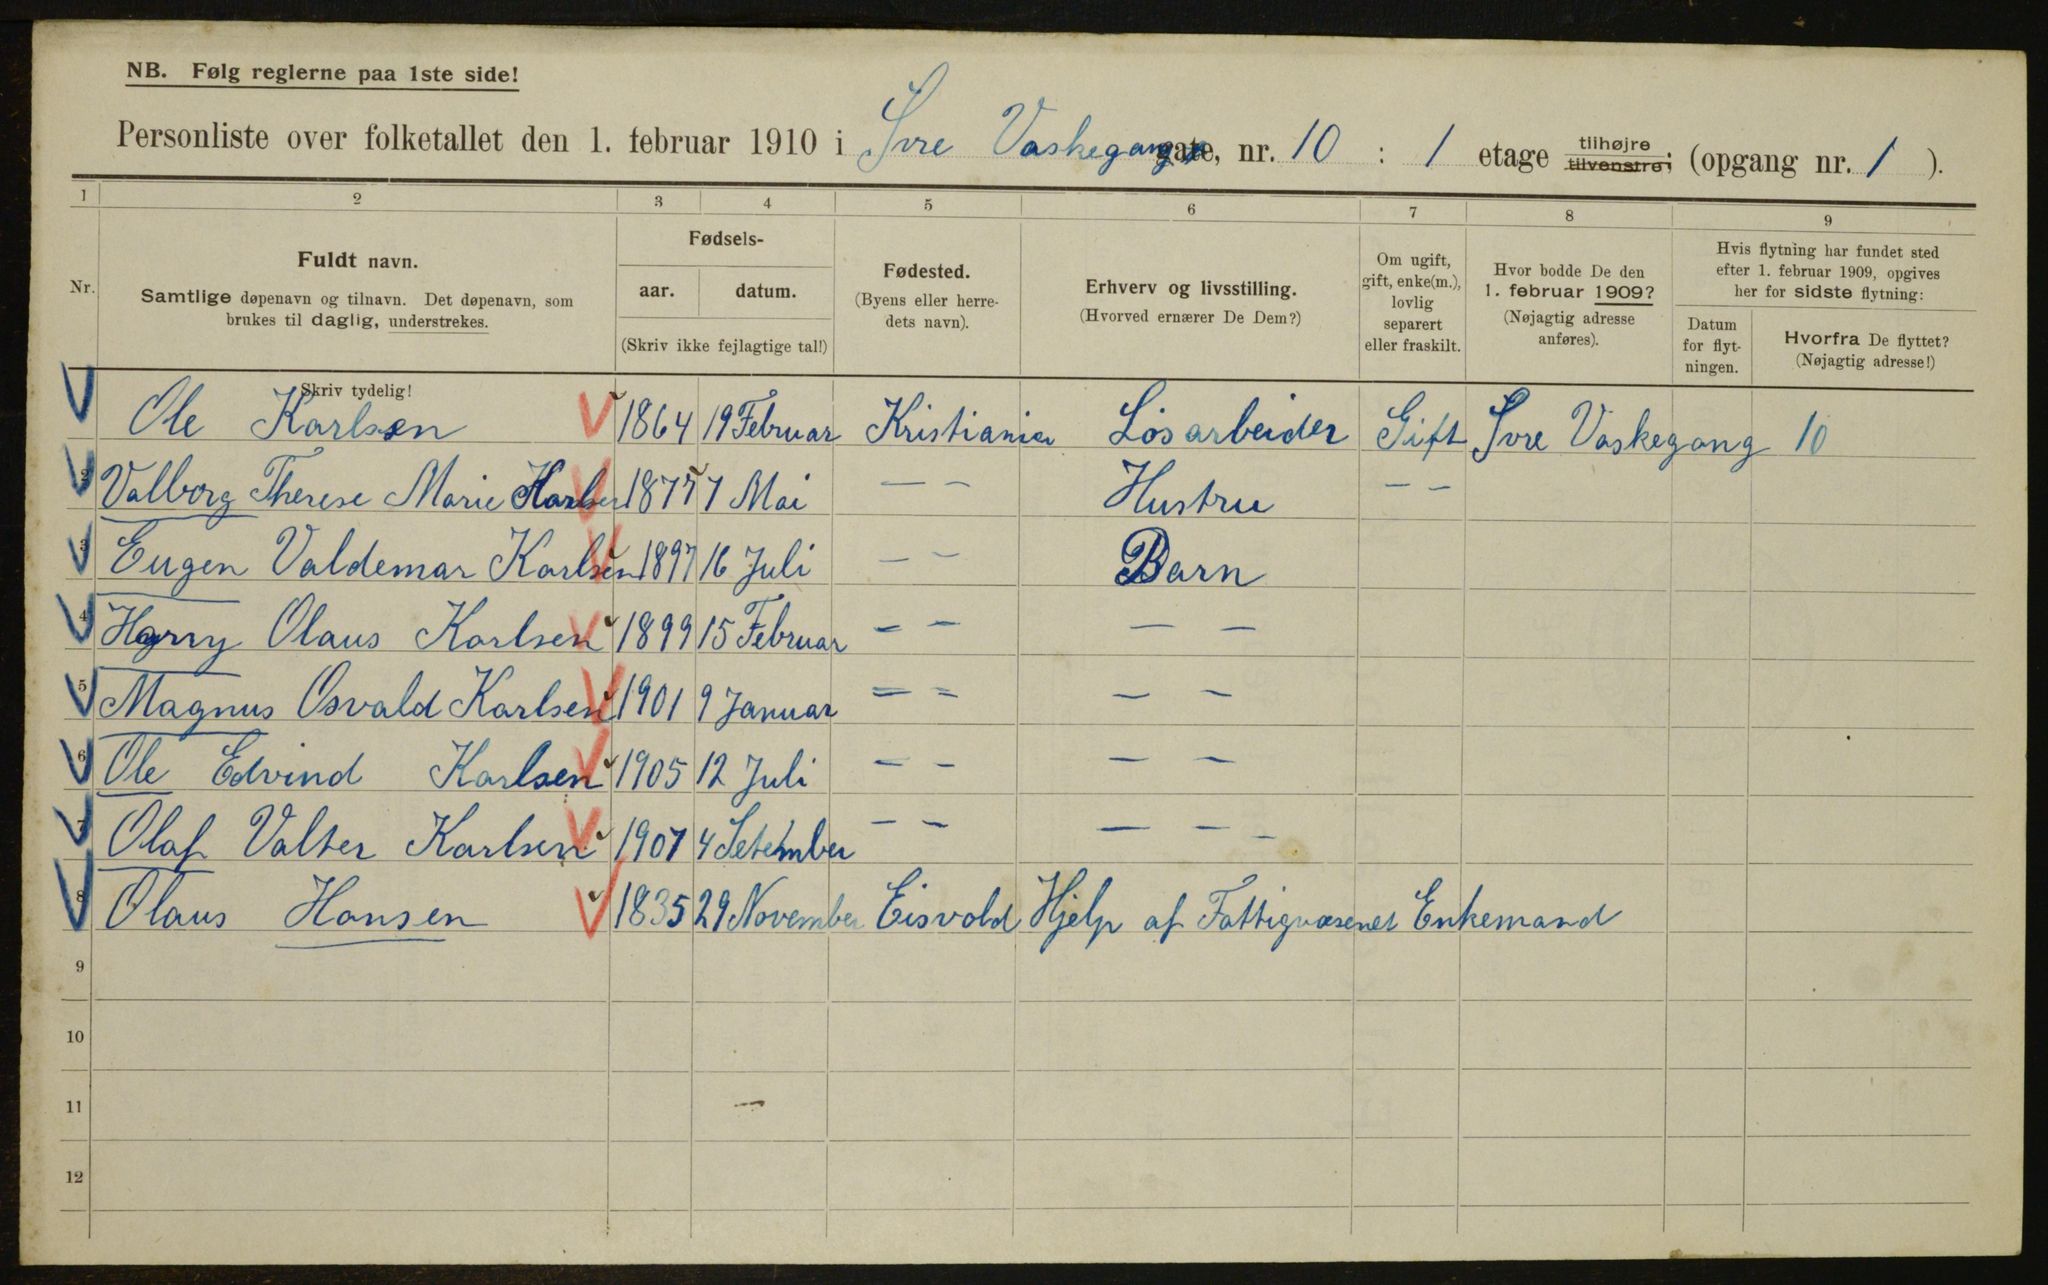 NB. Følg reglerne paa 1ste side!
Personliste over folketallet den 1. februar 1910 i Øvre Vaskegang gate, nr. 10 : 1 etage tilhøjre tilvenstre; (opgang nr. 1 ).
1 2 3 4 5 6 7 8 9
Nr.
Fuldt navn.
Samtlige døpenavn og tilnavn. Det døpenavn, som
brukes til daglig, understrekes.
Skriv tydelig!
Fødsels-
aar. datum.
(Skriv ikke fejlagtige tal!)
Fødested.
(Byens eller herre-
dets navn).
Erhverv og livsstilling.
(Hvorved ernærer De Dem?)
Om ugift,
gift, enke(m.),
lovlig
separert
eller fraskilt.
Hvor bodde De den
1. februar 1909?
(Nøjagtig adresse
anføres).
Hvis flytning har fundet sted
efter 1. februar 1909, opgives
her for sidste flytning:
Datum
for flyt-
ningen.
Hvorfra De flyttet?
(Nøjagtig adresse!)
Ole Karlsen 1864 19 Februar Kristiania Løsarbeider Gift Øvre Vaskegang 10
2 Valborg Therese Marie Karlsen 1877 7 Mai — — Hustru — —
3 Eugen Valdemar Karlsen 1897 16 Juli — — Barn
4 Harry Olaus Karlsen 1899 15 Februar — — — —
5 Magnus Osvald Karlsen 1901 9 Januar — — — —
6 Ole Edvind Karlsen 1905 12 Juli — — — —
7 Olaf Valter Karlsen 1907 4 Setember — — — — -
8 Olaus Hansen 1835 29 November Eisvold Hjelp af Fattigvæsenet Enkemand
9
10
11
12